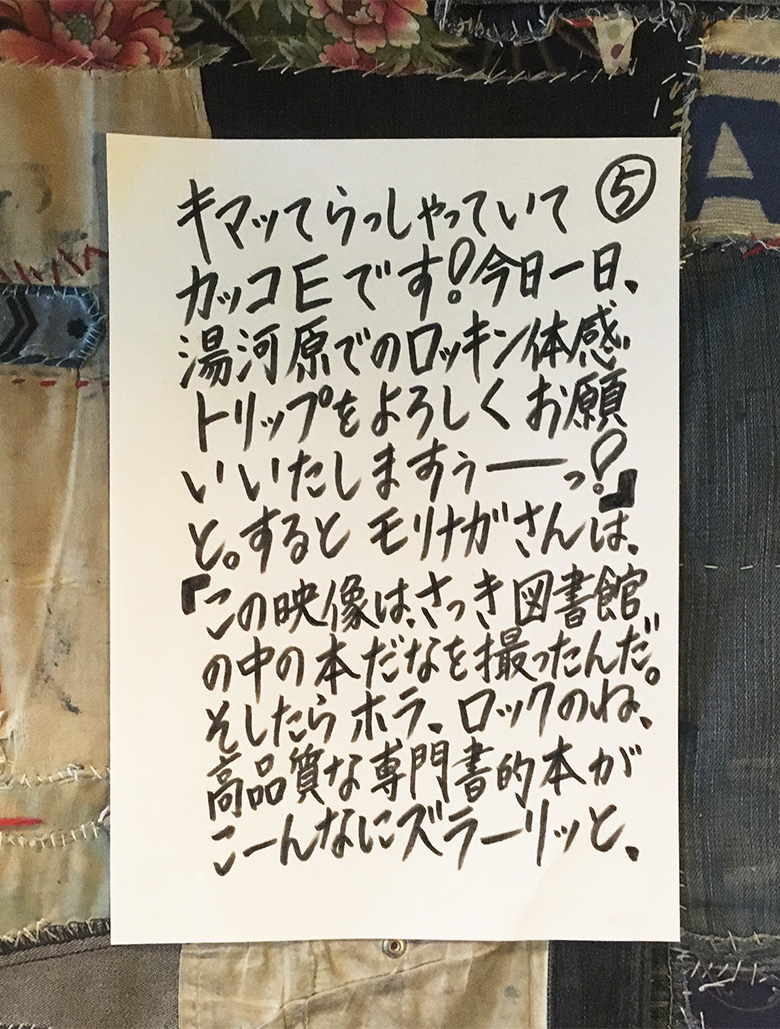 ⑤
キマッてらっしゃっていて
カッコEです!今日一日、
湯河原でのロッキン体感
トリップをよろしくお願
いいたしますぅーーっ!』
と。するとモリナガさんは、
『この映像は、さっき図書館
の中の本だなを撮ったんだ。
そしたらホラ、ロックのね、
高品質な専門書的本が
こーんなにズラーリッと、
A